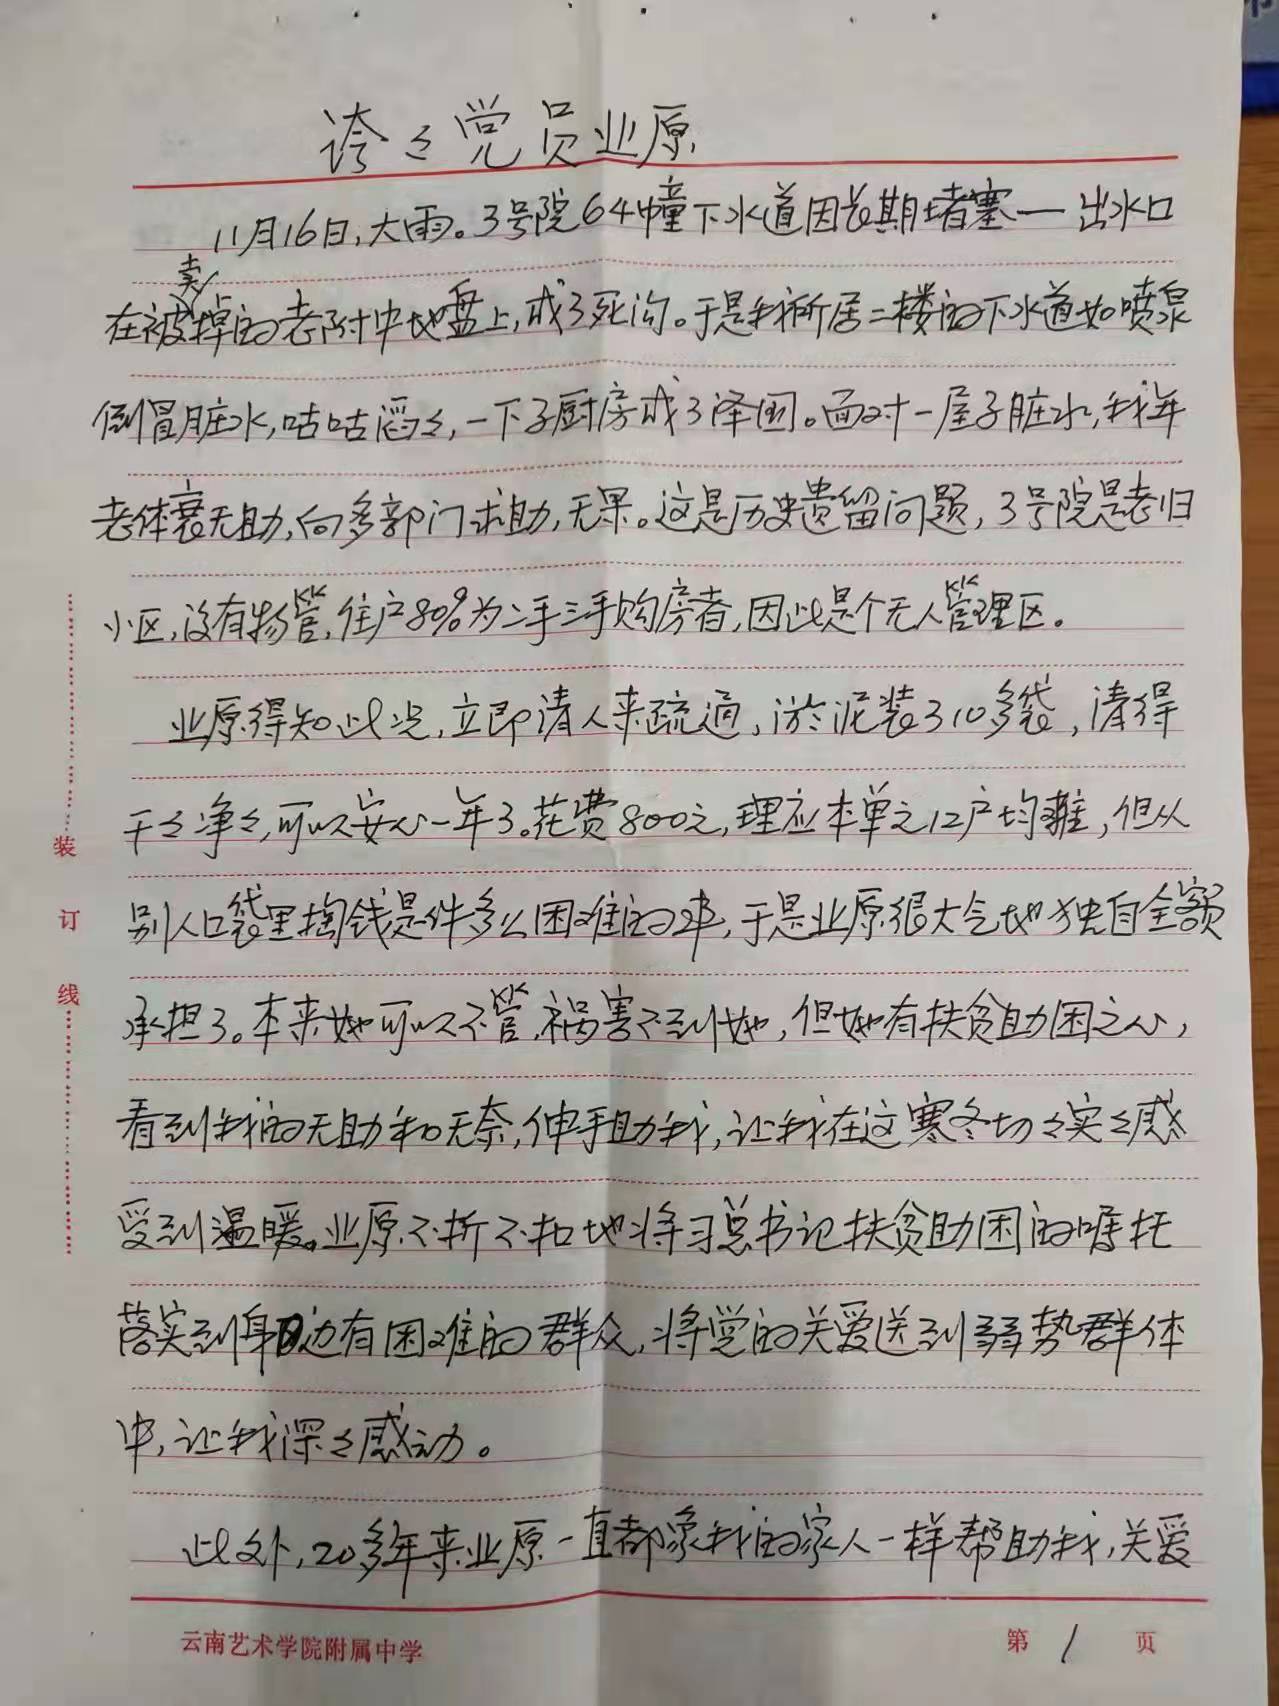 夸々党员业原
11月16日,大雨。3号院64幢下水道因长期堵塞—出水口
在被卖掉的老附中地盘上,成了死沟。于是我所居二楼的下水道如喷泉
倒冒脏水,咕咕滔々,一下子厨房成了泽国。面对一屋子脏水,我年
老体衰无助,向多部门求助,无果。这是历史遗留问题,3号院是老旧
小区,没有物管,住户80%为二手三手购房者,因此是个无人管理区。
业原得知此况,立即请人来疏通,淤泥装了10多袋,清得
干々净々,可以安心一年了。花费800元,理应本单元12户均摊,但从
别人口袋里掏钱是件多么困难的事,于是业原很大气地独自全额
承担了。本来她可以不管,祸害不到她,但她有扶贫助困之心,
看到我的无助和无奈,伸手助我,让我在这寒冬切々实々感
受到温暖。业原不折不扣地将习总书记扶贫助困的嘱托
落实到身边有困难的群众,将党的关爱送到弱势群体
中,让我深々感动。
此外,20多年来业原一直都象我的家人一样帮助我,关爱
装订线
云南艺术学院附属中学
第1页